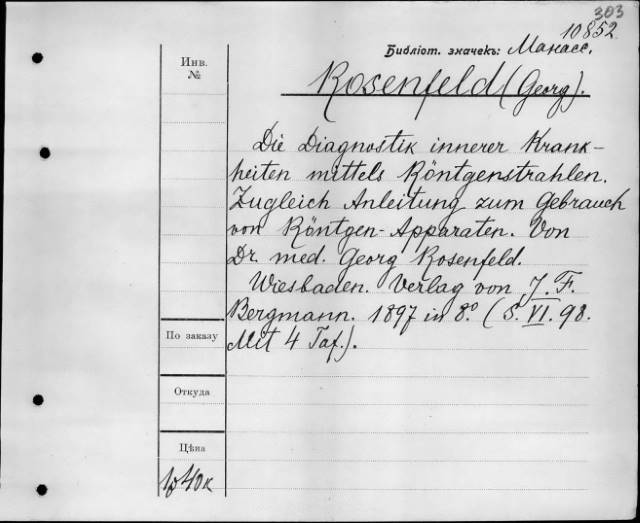 303
10852
Библіот. значекъ: Манасс.
Инв.
№
Rosenfeld (Georg).
Die Diagnostik innerer Krank-
heiten mittels Röntgenstrahlen.
Zugleich Anleitung zum Gebrauch
von Röntgen-Apparaten. Von
Dr. med. Georg Rosenfeld.
Wiesbaden. Verlag von J. F.
Bergmann. 1897 in 8.º (S. VI. 98.
Mit 4 Taf.).
По заказу
Откуда
Цѣна